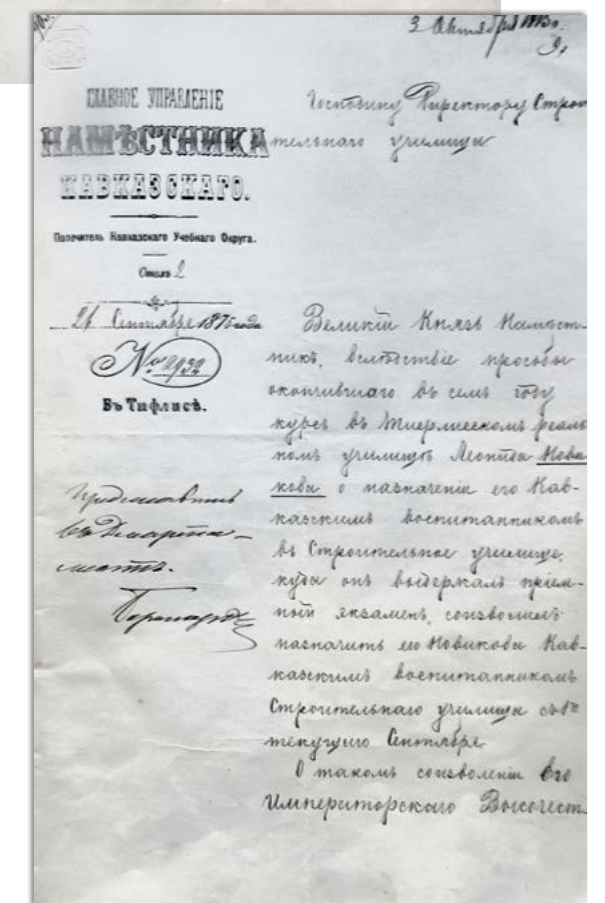 3 Октября 1875 г.
ГЛАВНОЕ УПРАВЛЕНІЕ
НАМѢСТНИКА
КАВКАЗСКАГО.
Попечитель Кавказскаго Учебнаго Округа.
Столъ 2
26 Сентября 1875 года
№ 2932
Въ Тифлисѣ.
Представить
въ Департа-
ментъ.
Господину Директору Строи
тельнаго училища
Великій Князь Намѣст-
никъ, вслѣдствіе просьбы
окончившаго въ семъ году
курсъ въ Тифлисскомъ реаль
номъ училищѣ Леонтія Нови
кова о назначеніи его Кав-
казскимъ воспитанникомъ
въ Строительное училище,
куда онъ выдержалъ пріем-
ный экзаменъ, соизволилъ
назначить его Новикова Кав-
казскимъ воспитанникомъ
Строительнаго училища съ
текущаго Сентября
О такомъ соизволеніи Его
Императорскаго Высочест